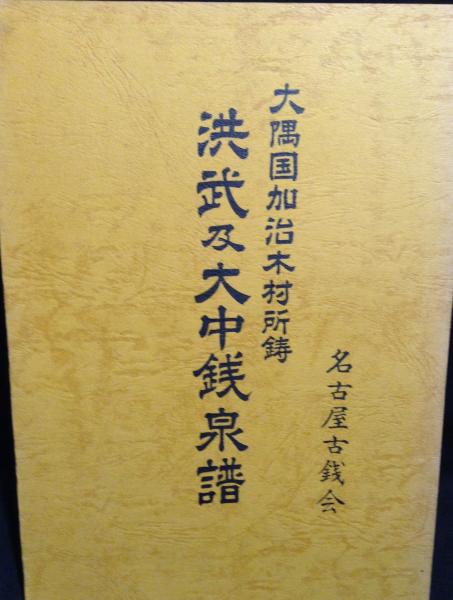 大隅国加治木村所鋳
洪武及大中銭泉譜
名古屋古銭会